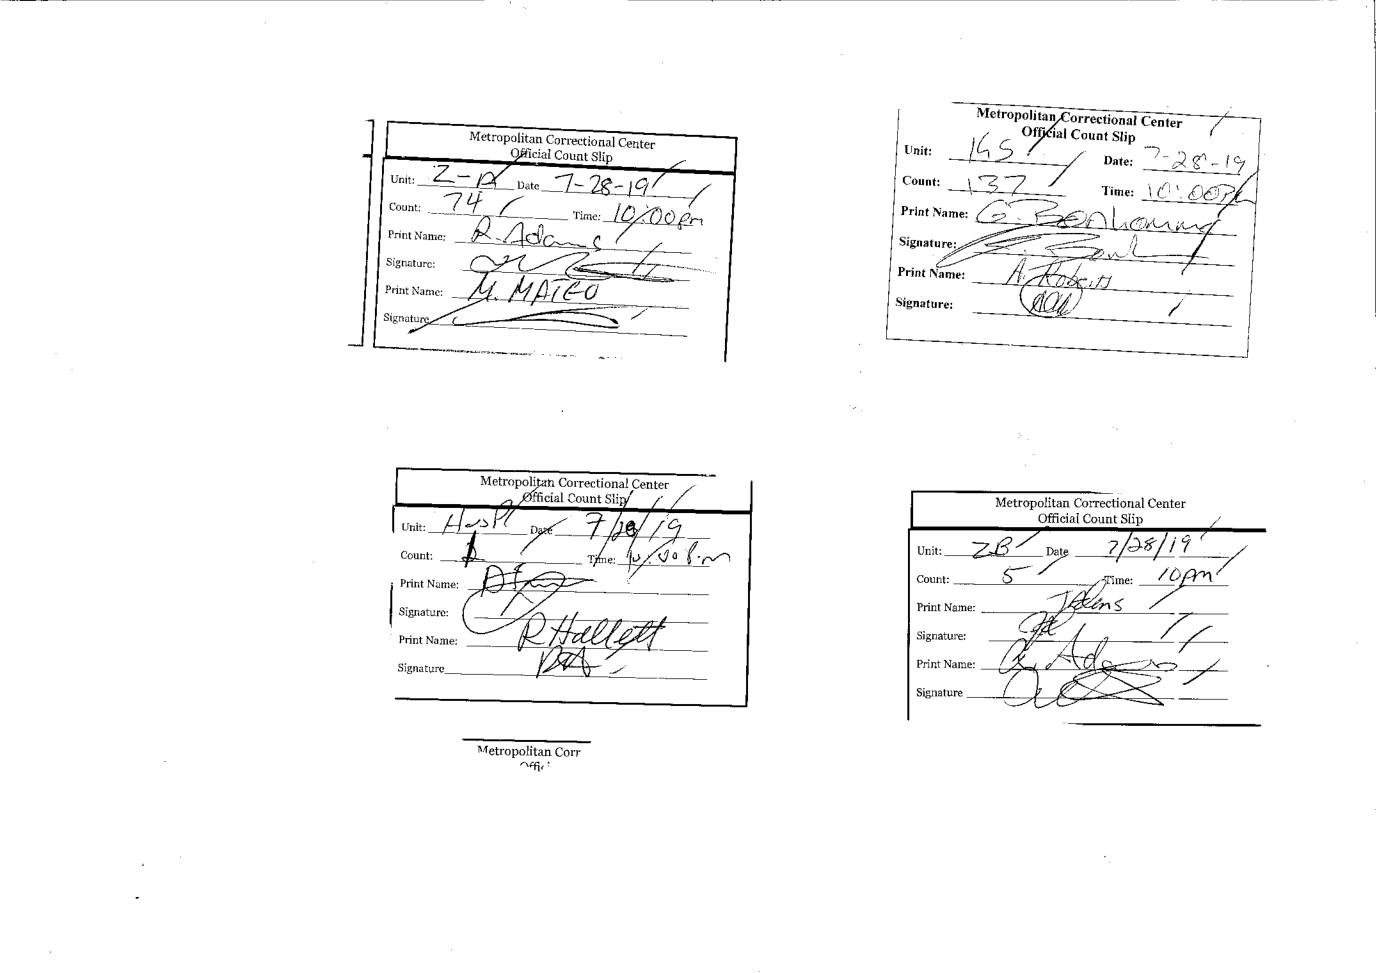 Metropolitan Correctional Center
Official Count Slip
Unit: Z-A Date 7-28-19
Count: 74 Time: 10:00pm
Print Name: R. Adams
Signature:
Print Name: M. MATEO
Signature
Metropolitan Correctional Center
Official Count Slip
Unit: Date: 7-28-19
Count: 137 Time: 10:00PM
Print Name: G.
Signature:
Print Name: A.
Signature:
Metropolitan Correctional Center
Official Count Slip
Unit: Hospl Date 7/28/19
Count: Time: 10:00 p.m
Print Name:
Signature:
Print Name: R Hallett
Signature
Metropolitan Correctional Center
Official Count Slip
Unit: ZB Date 7/28/19
Count: 5 Time: 10pm
Print Name:
Signature:
Print Name: Adams
Signature
Metropolitan Corr